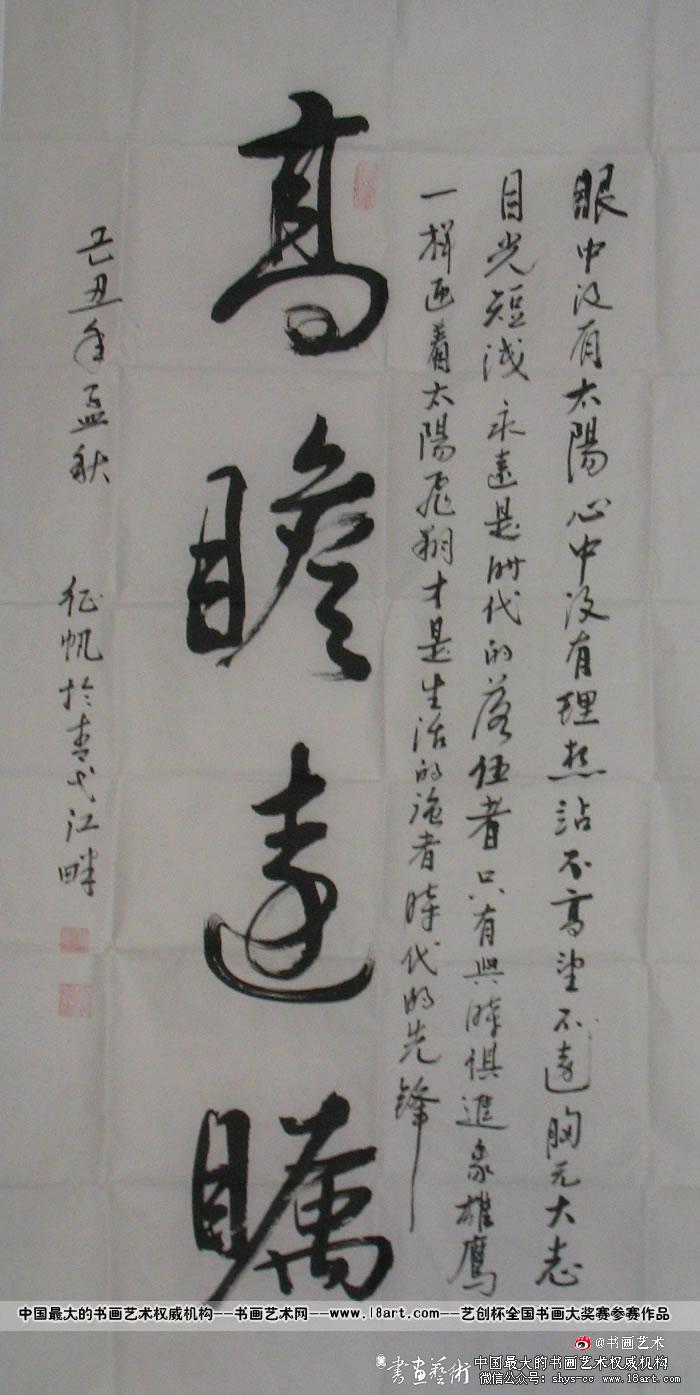 眼中没有太陽心中没有理想站不高望不遠胸无大志
目光短浅永遠是时代的落伍者只有與時俱進象雄鹰
一样迎着太陽飛翔才是生活的强者時代的先鋒
高瞻遠矚
己丑年孟秋 征帆於青弋江畔
中国最大的书画艺术权威机构--书画艺术网--www.18art.com--艺创杯全国书画大奖赛参赛作品
@书画艺术
書畫藝術 中国最大的书画艺术权威机构
微信公众号: shys-cc www.18art.com